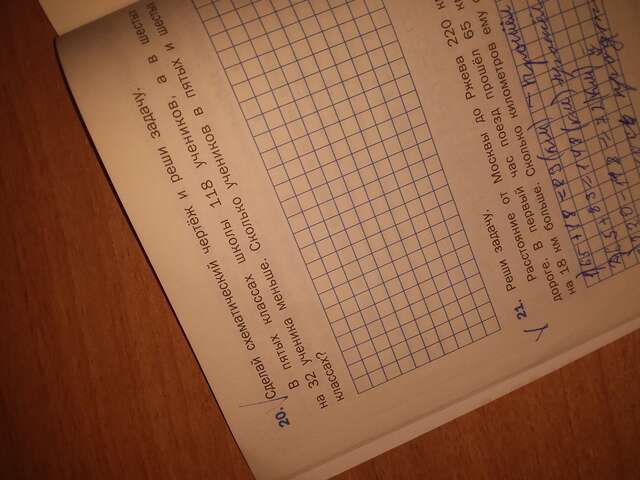 20. Сделай схематический чертёж и реши задачу.
В пятых классах школы 118 учеников, а в шестых
на 32 ученика меньше. Сколько учеников в пятых и шестых
классах?
21. Реши задачу.
Расстояние от Москвы до Ржева 220 км
дороге. В первый час поезд прошёл 65 км
на 18 км больше. Сколько километров ему
1) 65+18=83 (км) – прошёл
2) 65+83=148 (км) прошёл
3) 220-148=72 (км)